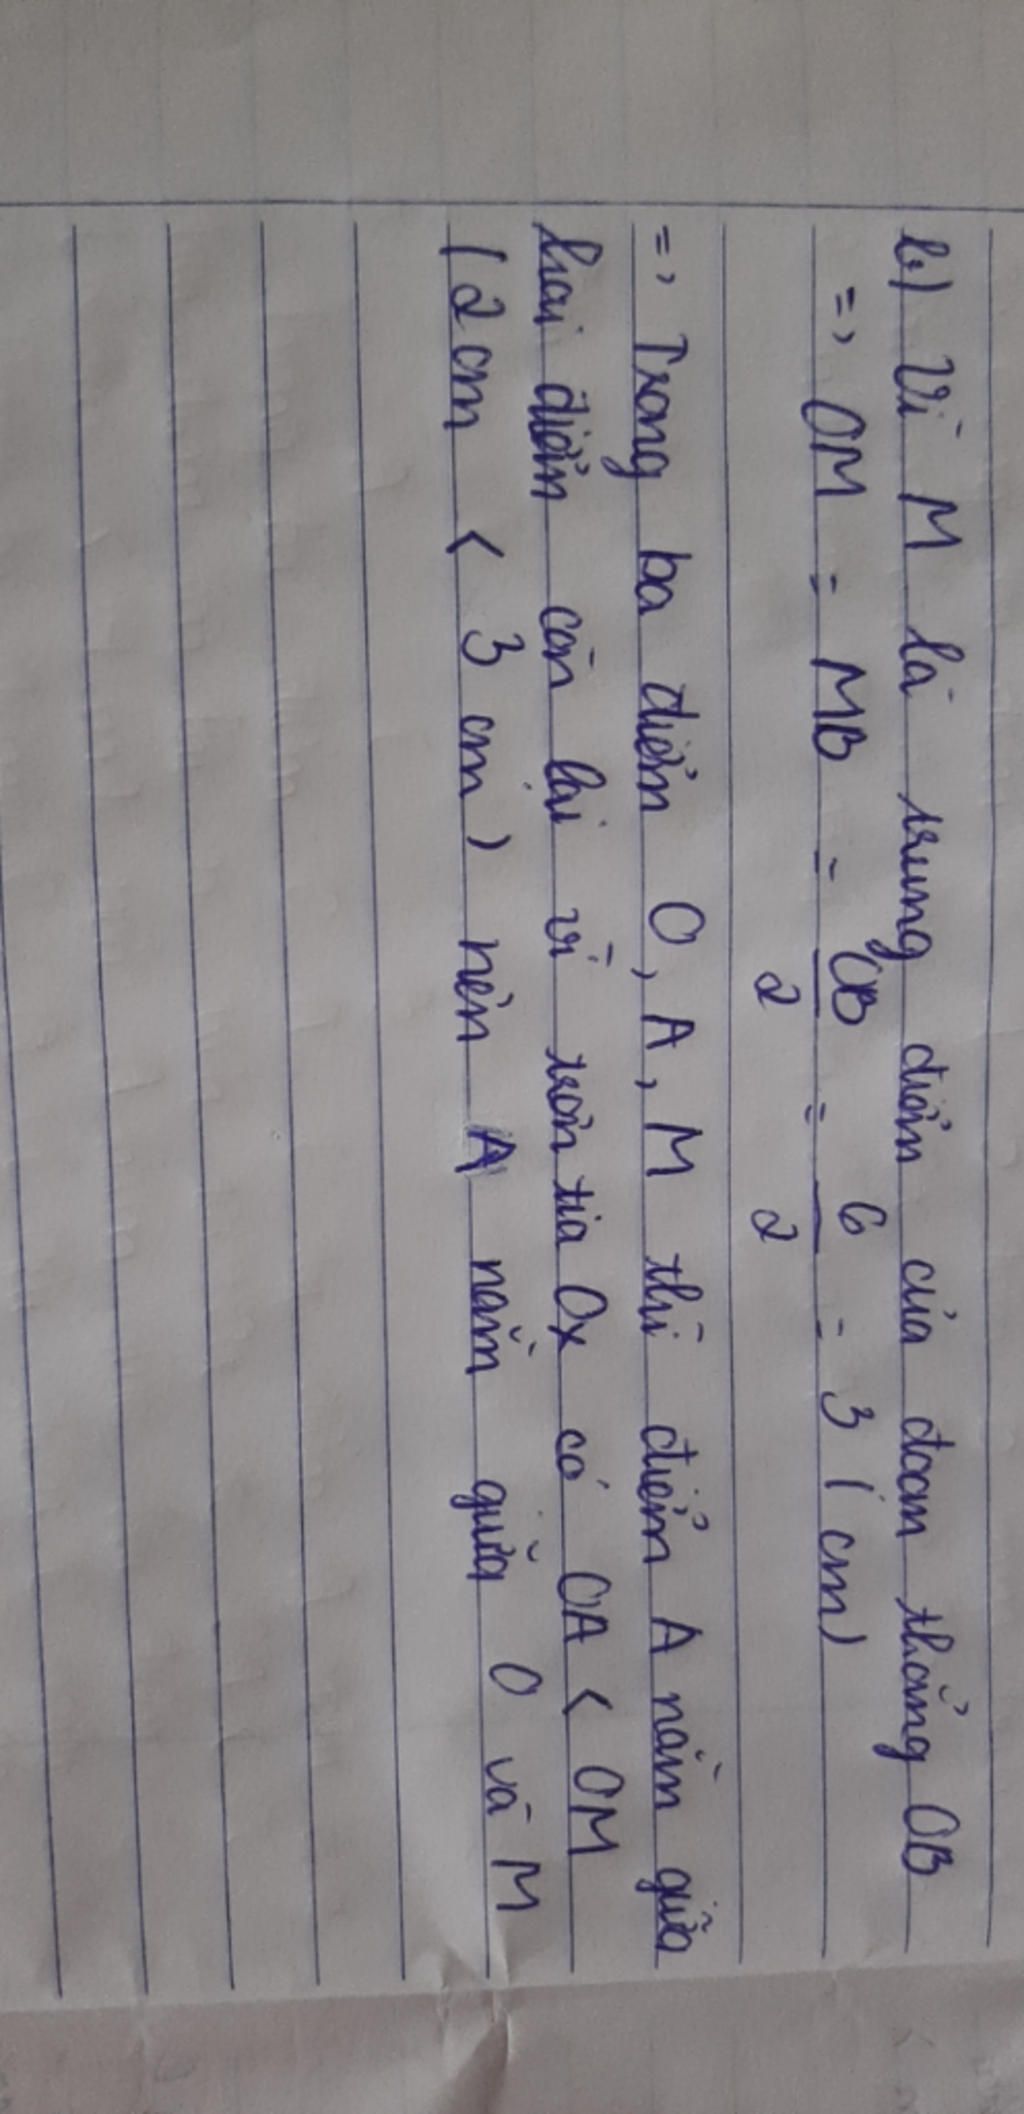 b) Vì M là trung điểm của đoạn thẳng OB
=> OM = MB = OB/2 = 6/2 = 3 (cm)
=> Trong ba điểm O, A, M thì điểm A nằm giữa
hai điểm còn lại vì trên tia Ox có OA < OM
(2cm < 3 cm) nên A nằm giữa O và M